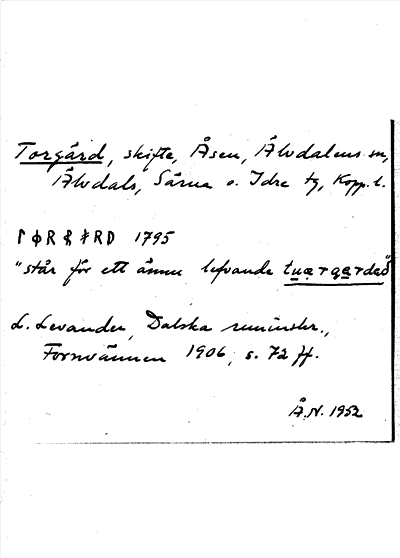 Torgård, skifte, Åsen, Älvdalens sn,
Älvdals, Särna o. Idre tg, Kopp. l.
ᛚᛰRᚵᚯRD 1795
"står för ett ännu lefvande tuąrgąrdað"
L. Levander, Dalska runinskr.,
Fornvännen 1906, s. 72 ff.
Å.N. 1952